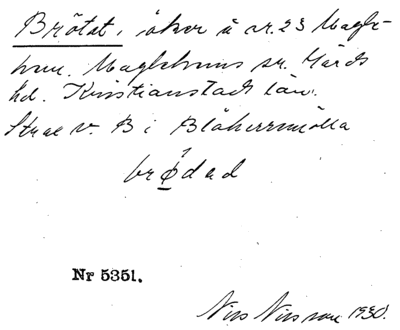 Brötet, åker å nr. 23 Maglehem. Maglehems sn. Gärds
hd. Kristianstads län.
Strax v. B i Blåherremölla
brødad
Nr 5351.
Nils Nilsson 1930.